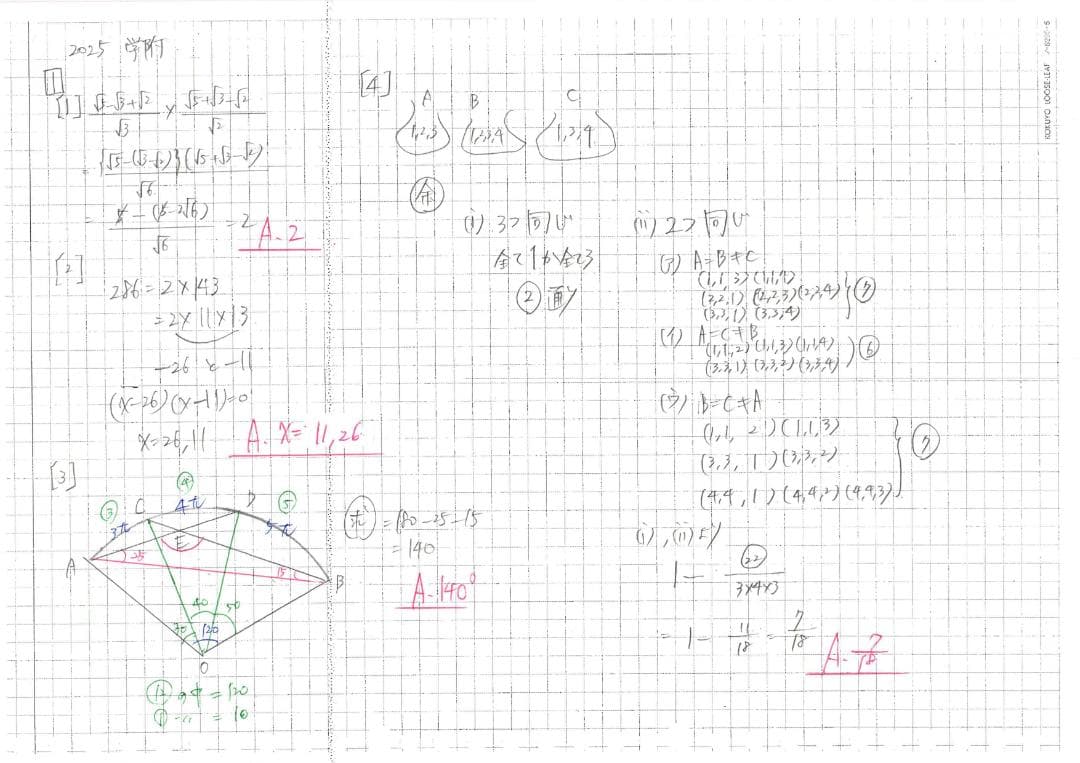 2025 学附
1
[1] (√5-√3+√2)/√3 × (√5+√3-√2)/√2
= {√5-(√3-√2)}(√5+√3-√2)/√6
= 5-(5-2√6)/√6 = 2
A. 2
[2]
286=2×143
=2×11×13
-26 と -11
(x-26)(x-11)=0
x=26,11
A. x=11,26
[3]
③ C ④ 4π D ⑤
3π 5π
A 25 E 15 B
40 50
30 120
O
⑫ の中 = 120
① 〃 = 10
求 =180-25-15
=140
A. 140°
[4]
A B C
1,2,3 1,2,3,4 1,3,4
余
(i) 3つ同じ
全て1か全て3
② 通り
(ii) 2つ同じ
(ア) A=B≠C
(1,1,3)(1,1,4)
(2,2,1)(2,2,3)(2,2,4) ⑦
(3,3,1)(3,3,4)
(イ) A=C≠B
(1,1,2)(1,1,3)(1,1,4)
(3,3,1)(3,3,2)(3,3,4) ⑥
(ウ) B=C≠A
(1,1,2)(1,1,3)
(3,3,1)(3,3,2) ⑦
(4,4,1)(4,4,2)(4,4,3)
(i),(ii)より
1- 22/3×4×3
=1- 11/18 = 7/18
A. 7/18
KOKUYO LOOSE-LEAF